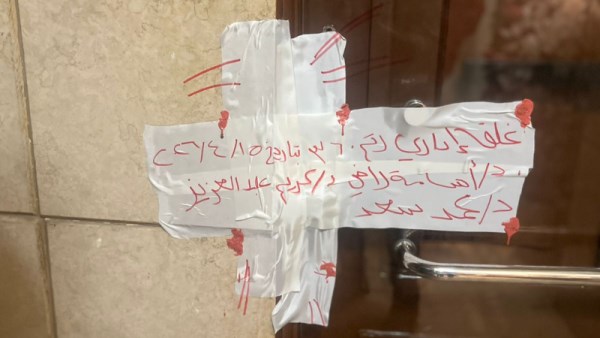 غلق إداري رقم ٣٦٠ تاريخ ٢٠٢٤/٨/٥
د/أسامة راضي د/كريم عبد العزيز
د/محمد سعد